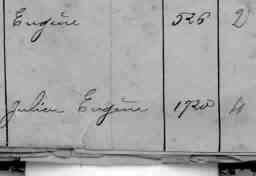 Eugène 526 2
Julien Eugène 1920 4